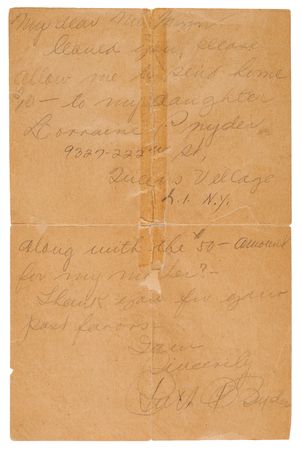 My dear Mr.
Would you please
allow me to send home
10 – to my daughter
Lorraine Snyder
9327-222nd St,
Queens Village
L.I. N.Y.
along with the $50 – amount
for my mother? –
Thank you for your
past favors –
I am
Sincerely
Snyder